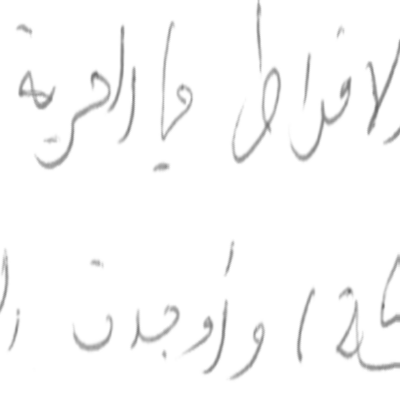 لافراط في الحرية
) وأوجدت